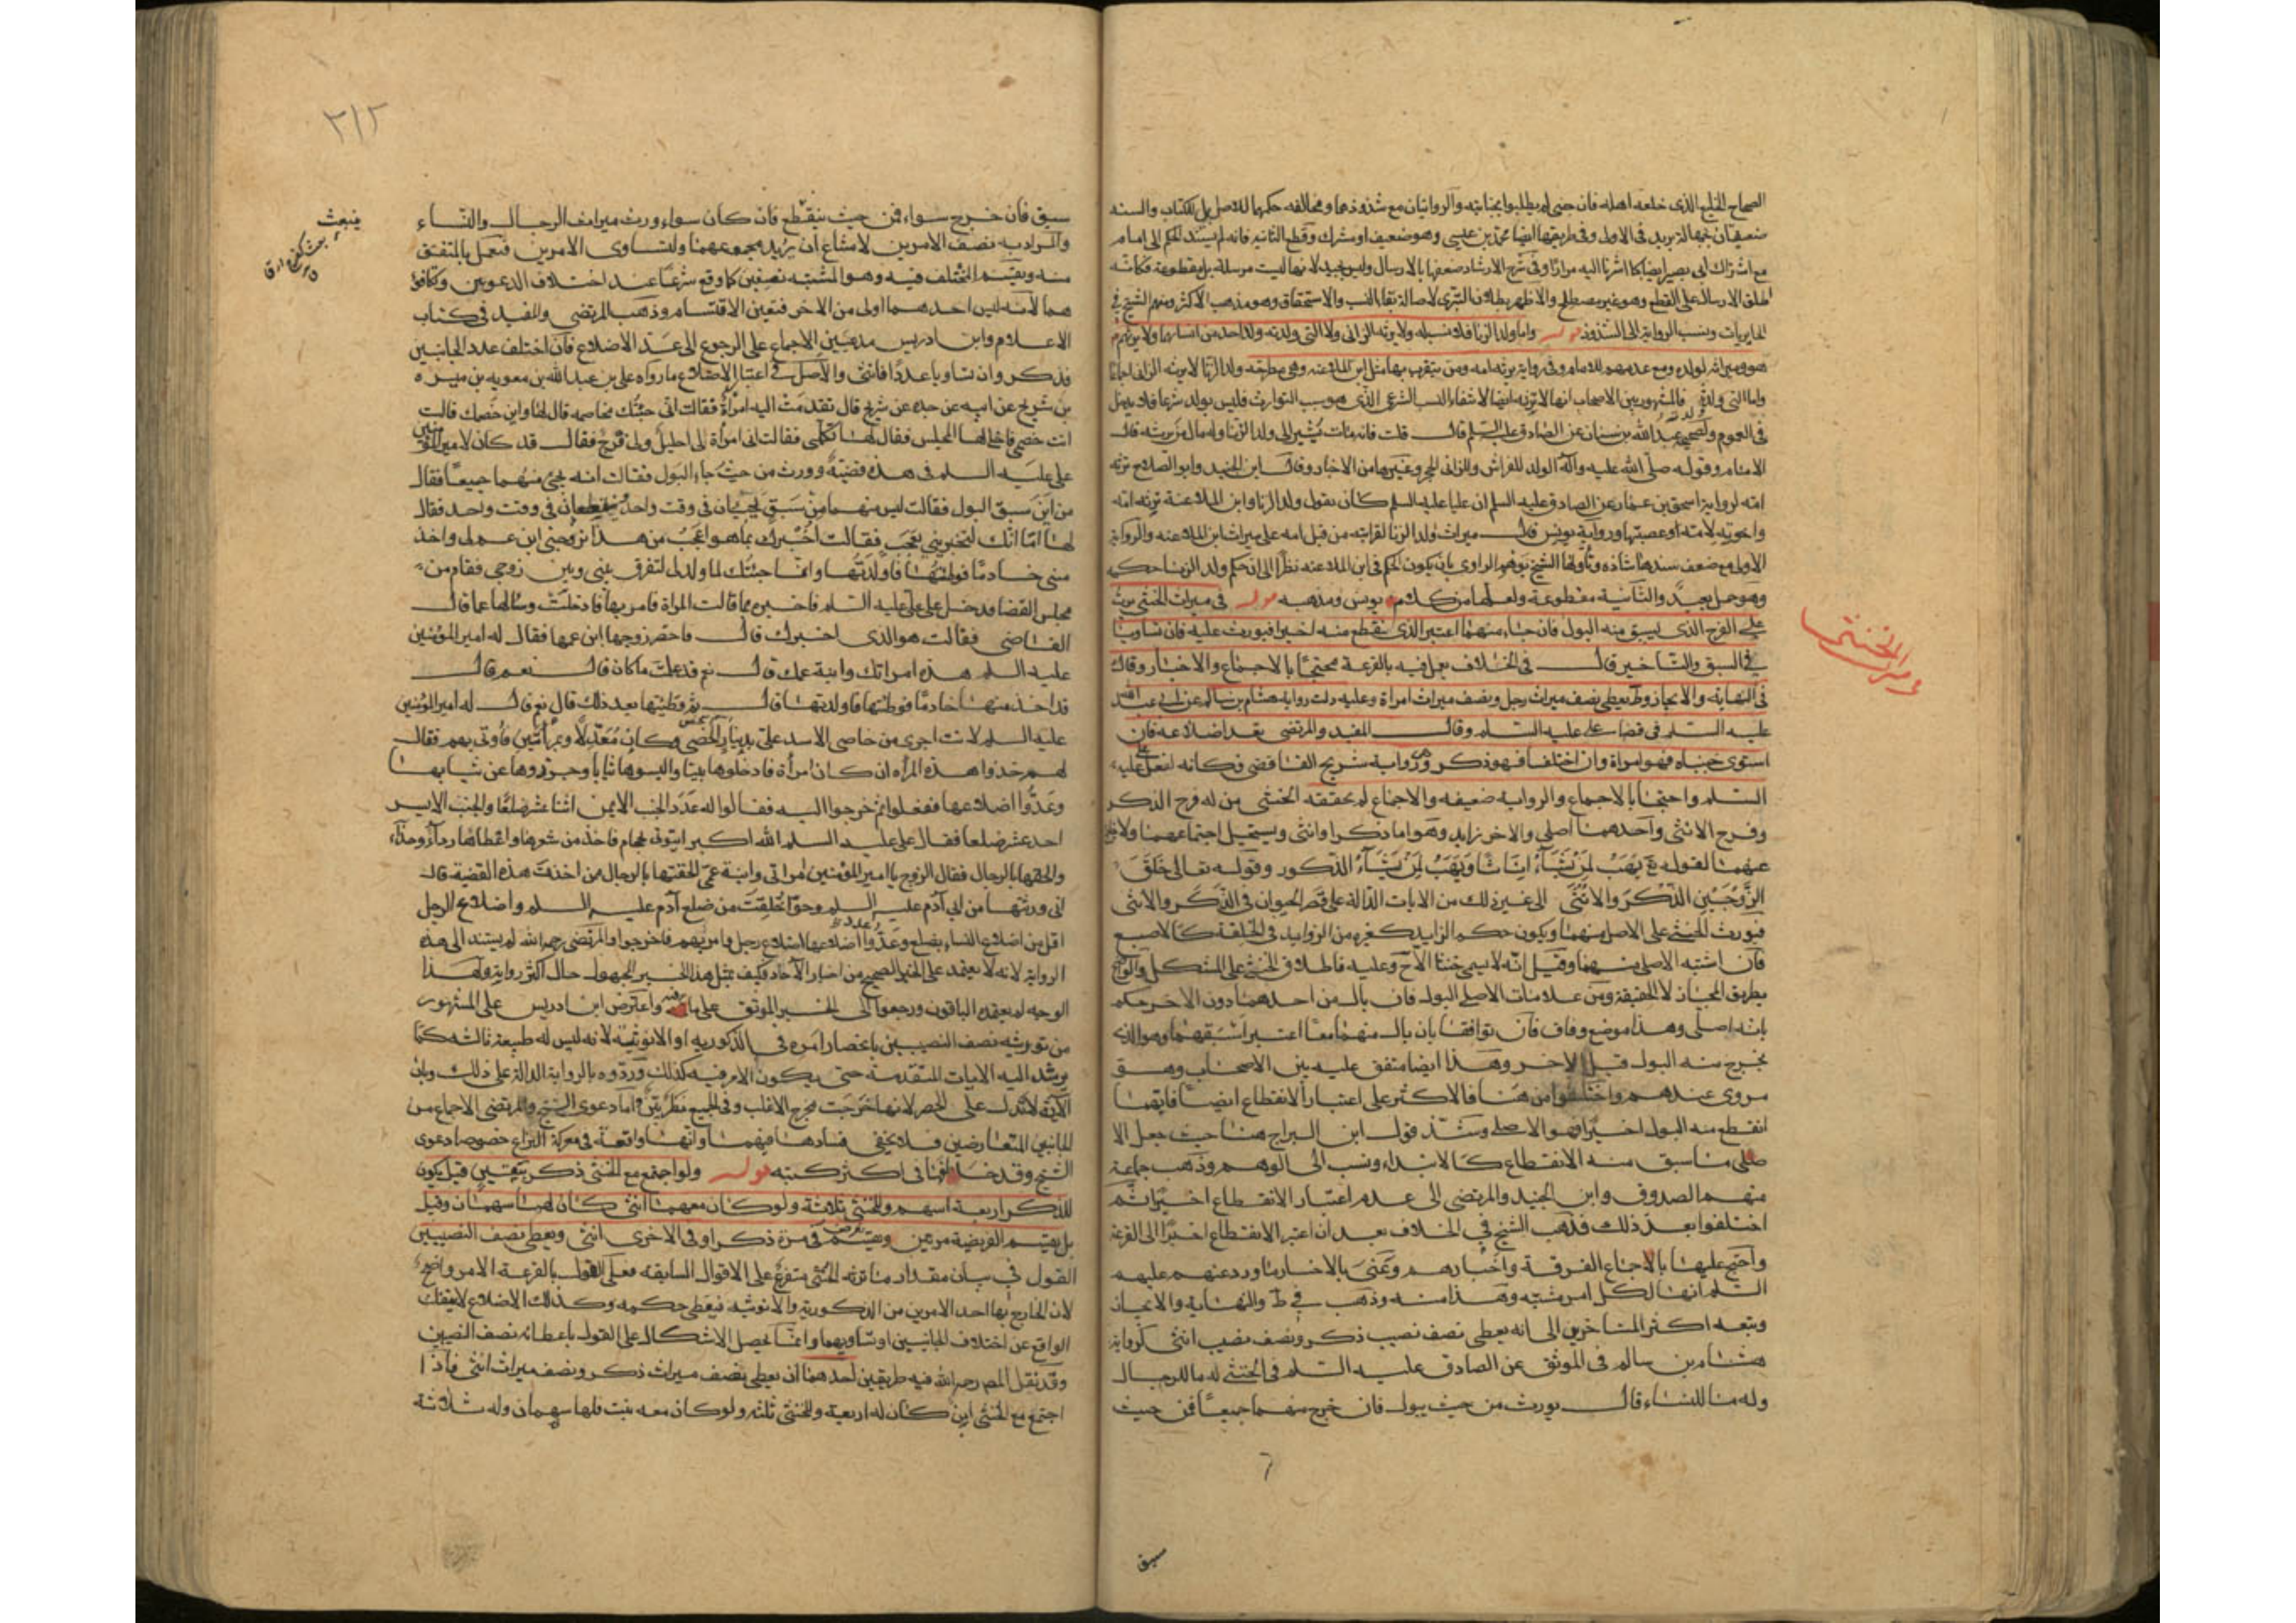 الصحاح الخليع الذى خلعه اهله فان جنى لم يطلبوا بجنايته والروايتان مع شذوذهما ومخالفه حكمهما للاصل بل للكتاب والسنه
ضعيفتان بجهالة بريد فى الاولى وفى طريقها ايضا محمد بن عيسى وهو ضعيف او مشترك وقطع الثانيه فانه لم يسند الحكم الى امام
مع اشتراك ابى بصير ايضا كما اشرنا اليه مرارا وفى شرح الارشاد ضعفها بالارسال وليس بجيد لانها ليست مرسلة بل مقطوعة فكانه
اطلق الارسال على القطع وهو غير مصطلح والاظهر بطلان التبرى لاصالة بقاء النسب والاستحقاق وهو مذهب الاكثر ومنهم الشيخ فى
الحايريات ونسب الرواية الى الشذوذ قوله واما ولد الزنا فلا نسب له ولا يرثه الزانى ولا التى ولدته ولا احد من انسابهما ولا يرثهم
هو وميراثه لولده ومع عدمهم للامام وفى رواية يرثه امه ومن يتقرب بها مثل ابن الملاعنه وهى مطرحه ولد الزنا لا يرثه الزانى اجماعا
واما التى ولدته فالمشهور بين الاصحاب انها لا ترثه ايضا لانتفاء النسب الشرعى الذى هو سبب التوارث فليس بولد شرعا فلا يدخل
فى العموم ولصحيحة عبد الله بن سنان عن الصادق عليه السلم قال قلت فانه مات يعنى ولد الزنا وله مال من يرثه قال
الامام وقوله صلى الله عليه وآله الولد للفراش وللزانى الحجر وغيرها من الاخبار وقال ابن الجنيد وابو الصلاح ترثه
امه لرواية اسحق بن عمار عن الصادق عليه السلم ان عليا عليه السلم كان يقول ولد الزنا وابن الملاعنة ترثه امه
واخوته لامه او عصبتها ورواية يونس قال ميراث ولد الزنا لقرابته من قبل امه على ميراث ابن الملاعنه والرواية
الاولى مع ضعف سندها شاذه وتأولها الشيخ بتوهم الراوى بان يكون الحكم فى ابن الملاعنه نظرا الى ان حكم ولد الزنا حكمه
وهو حمل بعيد والثانية مقطوعة ولعلها من كلام يونس ومذهبه قوله فى ميراث الخنثى يرث
على الفرج الذى يسبق منه البول فان جاء منهما اعتبر الذى ينقطع منه اخيرا فيورث عليه فان تساويا
فى السبق والتاخير قال فى الخلاف يعمل فيه بالقرعة محتجا بالاجماع والاخبار وقال
فى النهاية والايجاز وط يعطى نصف ميراث رجل ونصف ميراث امراة وعليه دلت رواية هشام بن سالم عن ابى عبد الله
عليه السلم فى قضاء على عليه السلم وقال المفيد والمرتضى يعد اضلاعه فان
استوى جنباه فهو امراة وان اختلفا فهو ذكر وهى رواية شريح القاضى حكاية لفعل على عليه
السلم واحتجا بالاجماع والرواية ضعيفه والاجماع لم يتحققه الخنثى من له فرج الذكر
وفرج الانثى واحدهما اصلى والاخر زايد وهو اما ذكر او انثى ويستحيل اجتماعهما ولا يخلو
عنهما لقوله تع يَهَبُ لِمَنْ يَشَآءُ اِنَاثًا وَيَهَبُ لِمَنْ يَشَآءُ الذكور وقوله تعالى خَلَقَ
الزَّوْجَيْنِ الذَّكَرَ والانُثَى الى غير ذلك من الايات الدالة على حصر الحيوان فى الذكر والانثى
فيورث الخنثى على الاصل منهما ويكون حكم الزايد كغيره من الزوايد فى الخلقة كالاصبع
فان اشتبه الاصلى منهما وقيل انه لا يسمى خنثى الا ح وعليه فاطلاق الخنثى على المشكل والواضح
بطريق المجاز لا الحقيقة ومن علامات الاصلى البول فان بال من احدهما دون الاخر حكم
بانه اصلى وهذا موضع وفاق فان توافقا بان بال منهما معا اعتبر اسبقهما وهو الذى
يخرج منه البول قبل الاخر وهذا ايضا متفق عليه بين الاصحاب وهو
مروى عندهم واختلفوا من هنا فالاكثر على اعتبار الانقطاع ايضا فايهما
انقطع منه البول اخيرا فهو الاصلى وشذ قول ابن البراج هنا حيث جعل الا
صلى ما سبق منه الانقطاع كالابتداء ونسب الى الوهم وذهب جماعة
منهم الصدوق وابن الجنيد والمرتضى الى عدم اعتبار الانقطاع اخيرا ثم
اختلفوا بعد ذلك فذهب الشيخ فى الخلاف بعد ان اعتبر الانقطاع اخيرا الى القرعة
واحتج عليها بالاجماع الفرقة واخبارهم وعنى بالاخبار ما ورد عنهم عليهم
السلم انها لكل امر مشتبه وهذا منه وذهب فى ط والنهاية والايجاز
وتبعه اكثر المتاخرين الى انه يعطى نصف نصيب ذكر ونصف نصيب انثى لرواية
هشام بن سالم فى الموثق عن الصادق عليه السلم فى الخنثى له ما للرجال
وله ما للنساء قال يورث من حيث يبول فان خرج منهما جميعا فمن حيث
سبق
ميراث الخنثى
٣١٢
سبق فان خرج سواء فمن حيث ينقطع فان كان سواء ورث ميراث الرجال والنساء
والمراد به نصف الامرين لامتناع ان يريد مجموعهما ولتساوى الامرين فيعمل بالمتفق
منه ويقسم المختلف فيه وهو المشتبه نصفين كما وقع شرعا عند اختلاف الدعويين وتكافؤ
هما لانه ليس احدهما اولى من الاخر فتعين الاقتسام وذهب المرتضى والمفيد فى كتاب
الاعلام وابن ادريس مدعين الاجماع على الرجوع الى عد الاضلاع فان اختلف عدد الجانبين
فذكر وان تساويا عددا فانثى والاصل فى اعتبار الاضلاع ما رواه على بن عبد الله بن معوية بن ميسره
بن شريح عن ابيه عن جده عن شريح قال تقدمت اليه امراة فقالت انى جئتك مخاصمه قال لها واين خصمك قالت
انت خصمى فاخلى لها المجلس فقال لها تكلمى فقالت انى امراة لى احليل ولى فرج فقال قد كان لامير المؤمنين
على عليه السلم فى هذه قضية وورث من حيث جاء البول فقالت انه يجىء منهما جميعا فقال
من اين سبق البول فقالت ليس منهما من سبق يجيئان فى وقت واحد وينقطعان فى وقت واحد فقال
لها اما انك لتخبرينى بعجب فقالت اخبرك بما هو اعجب من هذا تزوجنى ابن عم لى واخذ
منى خادما فوطئتها فاولدتها وانما جئتك لما ولد لى لتفرق بينى وبين زوجى فقام من
مجلس القضا فدخل على على عليه السلم فاخبره بما قالت المراة فامر بها فادخلت وسالها عما قال
القاضى فقالت هو الذى اخبرك قال فاحضر زوجها ابن عمها فقال له امير المؤمنين
عليه السلم هذه امراتك وابنة عمك قال نعم قد علمت ما كان قال نعم قال
قد اخذ منها خادما فوطئتها فاولدتها قال ثم وطئتها بعد ذلك قال نعم قال له امير المؤمنين
عليه السلم لانت اجرى من خاصى الاسد على بدينار الخصى وكان معدلا وبمراتين فاوتى بهم فقال
لهم خذوا هذه المراه ان كان امرأة فادخلوها بيتا والبسوها ثيابا وجردوها عن ثيابها
وعدوا اضلاعها ففعلوا ثم خرجوا اليه فقالوا له عدد الجنب الايمن اثنا عشر ضلعا والجنب الايسر
احد عشر ضلعا فقال على عليه السلم الله اكبر ايتونى بحجام فاخذ من شعرها واعطاها رداء وحذاء
والحقها بالرجال فقال الزوج يا امير المؤمنين امراتى وابنة عمى الحقتها بالرجال ممن اخذت هذه القضية قال
انى ورثتها من ابى آدم عليه السلم وحوا خلقت من ضلع آدم عليه السلم واضلاع الرجل
اقل من اضلاع النساء بضلع وعدد اضلاعها اضلاع رجل وامر بهم فاخرجوا والمرتضى رحمه الله لم يستند الى هذه
الرواية لانه لا يعتمد على الخبر الصحيح من اخبار الآحاد فكيف بمثل هذا الخبر المجهول حال اكثر رواته ولهذا
الوجه لم يعتمده الباقون ورجعوا الى الخبر الموثق على ما فيه واعترض ابن ادريس على المشهور
من توريثه نصف النصيبين بانحصار امره فى الذكوريه او الانوثية لانه ليس له طبيعة ثالثه كما
يرشد اليه الايات المتقدمة حتى يكون الامر فيه كذلك وردوه بالرواية الدالة على ذلك وبان
الآية لا تدل على الحصر لانها خرجت مخرج الاغلب وفى الجميع نظر بين واما دعوى الشيخ والمرتضى الاجماع من
الجانبين المتعارضين فلا يخفى فسادها فيهما وانها واقعة فى معركة النزاع خصوصا دعوى
الشيخ وقد خالفها فى اكثر كتبه قوله ولو اجتمع مع الخنثى ذكر بيقين قيل يكون
للذكر اربعة اسهم وللخنثى ثلاثة ولو كان معهما انثى كان لها سهمان وقيل
بل يقسم الفريضة مرتين ويفرض فى مرة ذكرا وفى الاخرى انثى ويعطى نصف النصيبين
القول فى بيان مقدار ما ترثه الخنثى متفرع على الاقوال السابقه فعلى القول بالقرعة الامر واضح
لان الخارج بها احد الامرين من الذكورية والانوثيه فيعطى حكمه وكذلك الاضلاع لا ينفك
الواقع عن اختلاف الجانبين او تساويهما وانما يحصل الاشكال على القول باعطائه نصف النصيبين
وقد نقل المص رحمه الله فيه طريقين احدهما ان يعطى نصف ميراث ذكر ونصف ميراث انثى فاذا
اجتمع مع الخنثى ابن كان له اربعة وللخنثى ثلثه ولو كان معه بنت فلها سهمان وله ثلاثة
ينبعث